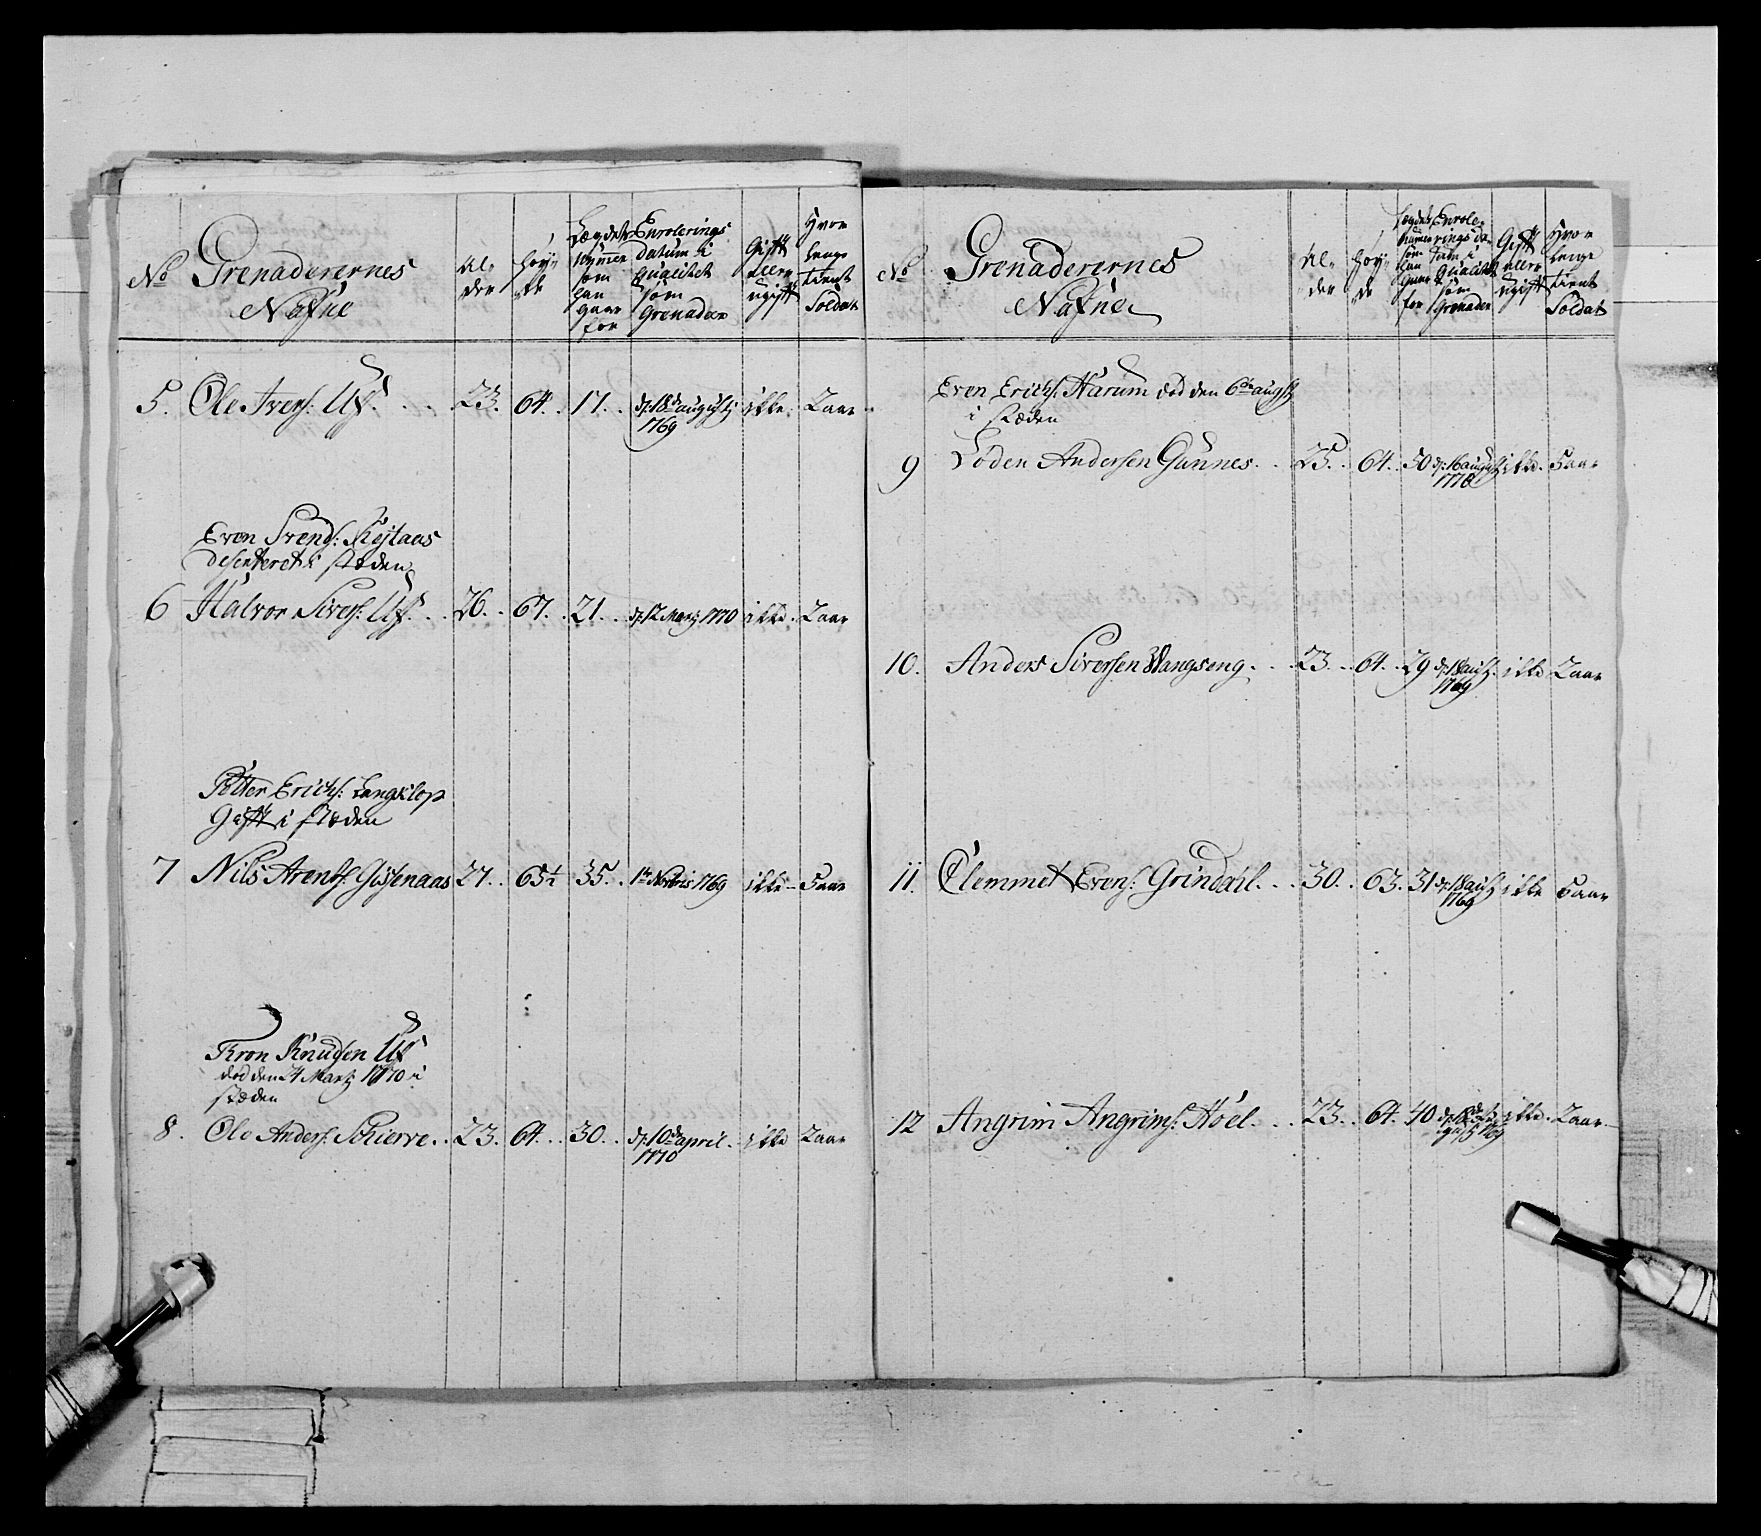 No Grenaderernes Nafne
Al„ der
Høy„ de
Lægdets Numer som han gaar for
Enrolerings datum i qualitet som Grenader
Gift eller ugift
Hvor lenge tient Soldat
5. Ole Ivers: Uf. 23. 64. 17. d: 18de augustj 1769 ikke. 2 aar
Even Svends:
deserteret i stæden
6 Halvor Sivers: Uf. 26. 67. 21. d: 12 Martj 1770 ikke. 2 aar
Petter Erichs: Langklop
Gift i stæden
7 Nils Arents: 27. 65½ 35. 1te 1769 ikke 5 aar
Tron Knudsen Uf
død den 24 Martj 1770 i
stæden
8. Ole Anders: Schierve. 23. 64. 30. d: 10de april. 1770 ikke 2 aar
No Grenaderernes Nafne
Al„ der
Høy„ de
Lægdets Numer som han gaar for
Enrolerings datum i qualitet som Grenader
Gift eller ugift
Hvor lenge tient Soldat
Even Erichs: Harum død den 6te augustj
i stæden
9 Loden Andersen Gunnes. 25. 64. 50 d: 16 augustj 1770 ikke. 5 aar
10. Anders Siversen Vangseng. 23. 64. 29 d: 18 1769 ikke 2 aar
11. Clemmet Evens: Grindahl. 30. 63. 31 d: 18 1769 ikke 6 aar
12 Angrim Angrims: Hoel. 23. 64. 40 1769 ikke. 2 aar